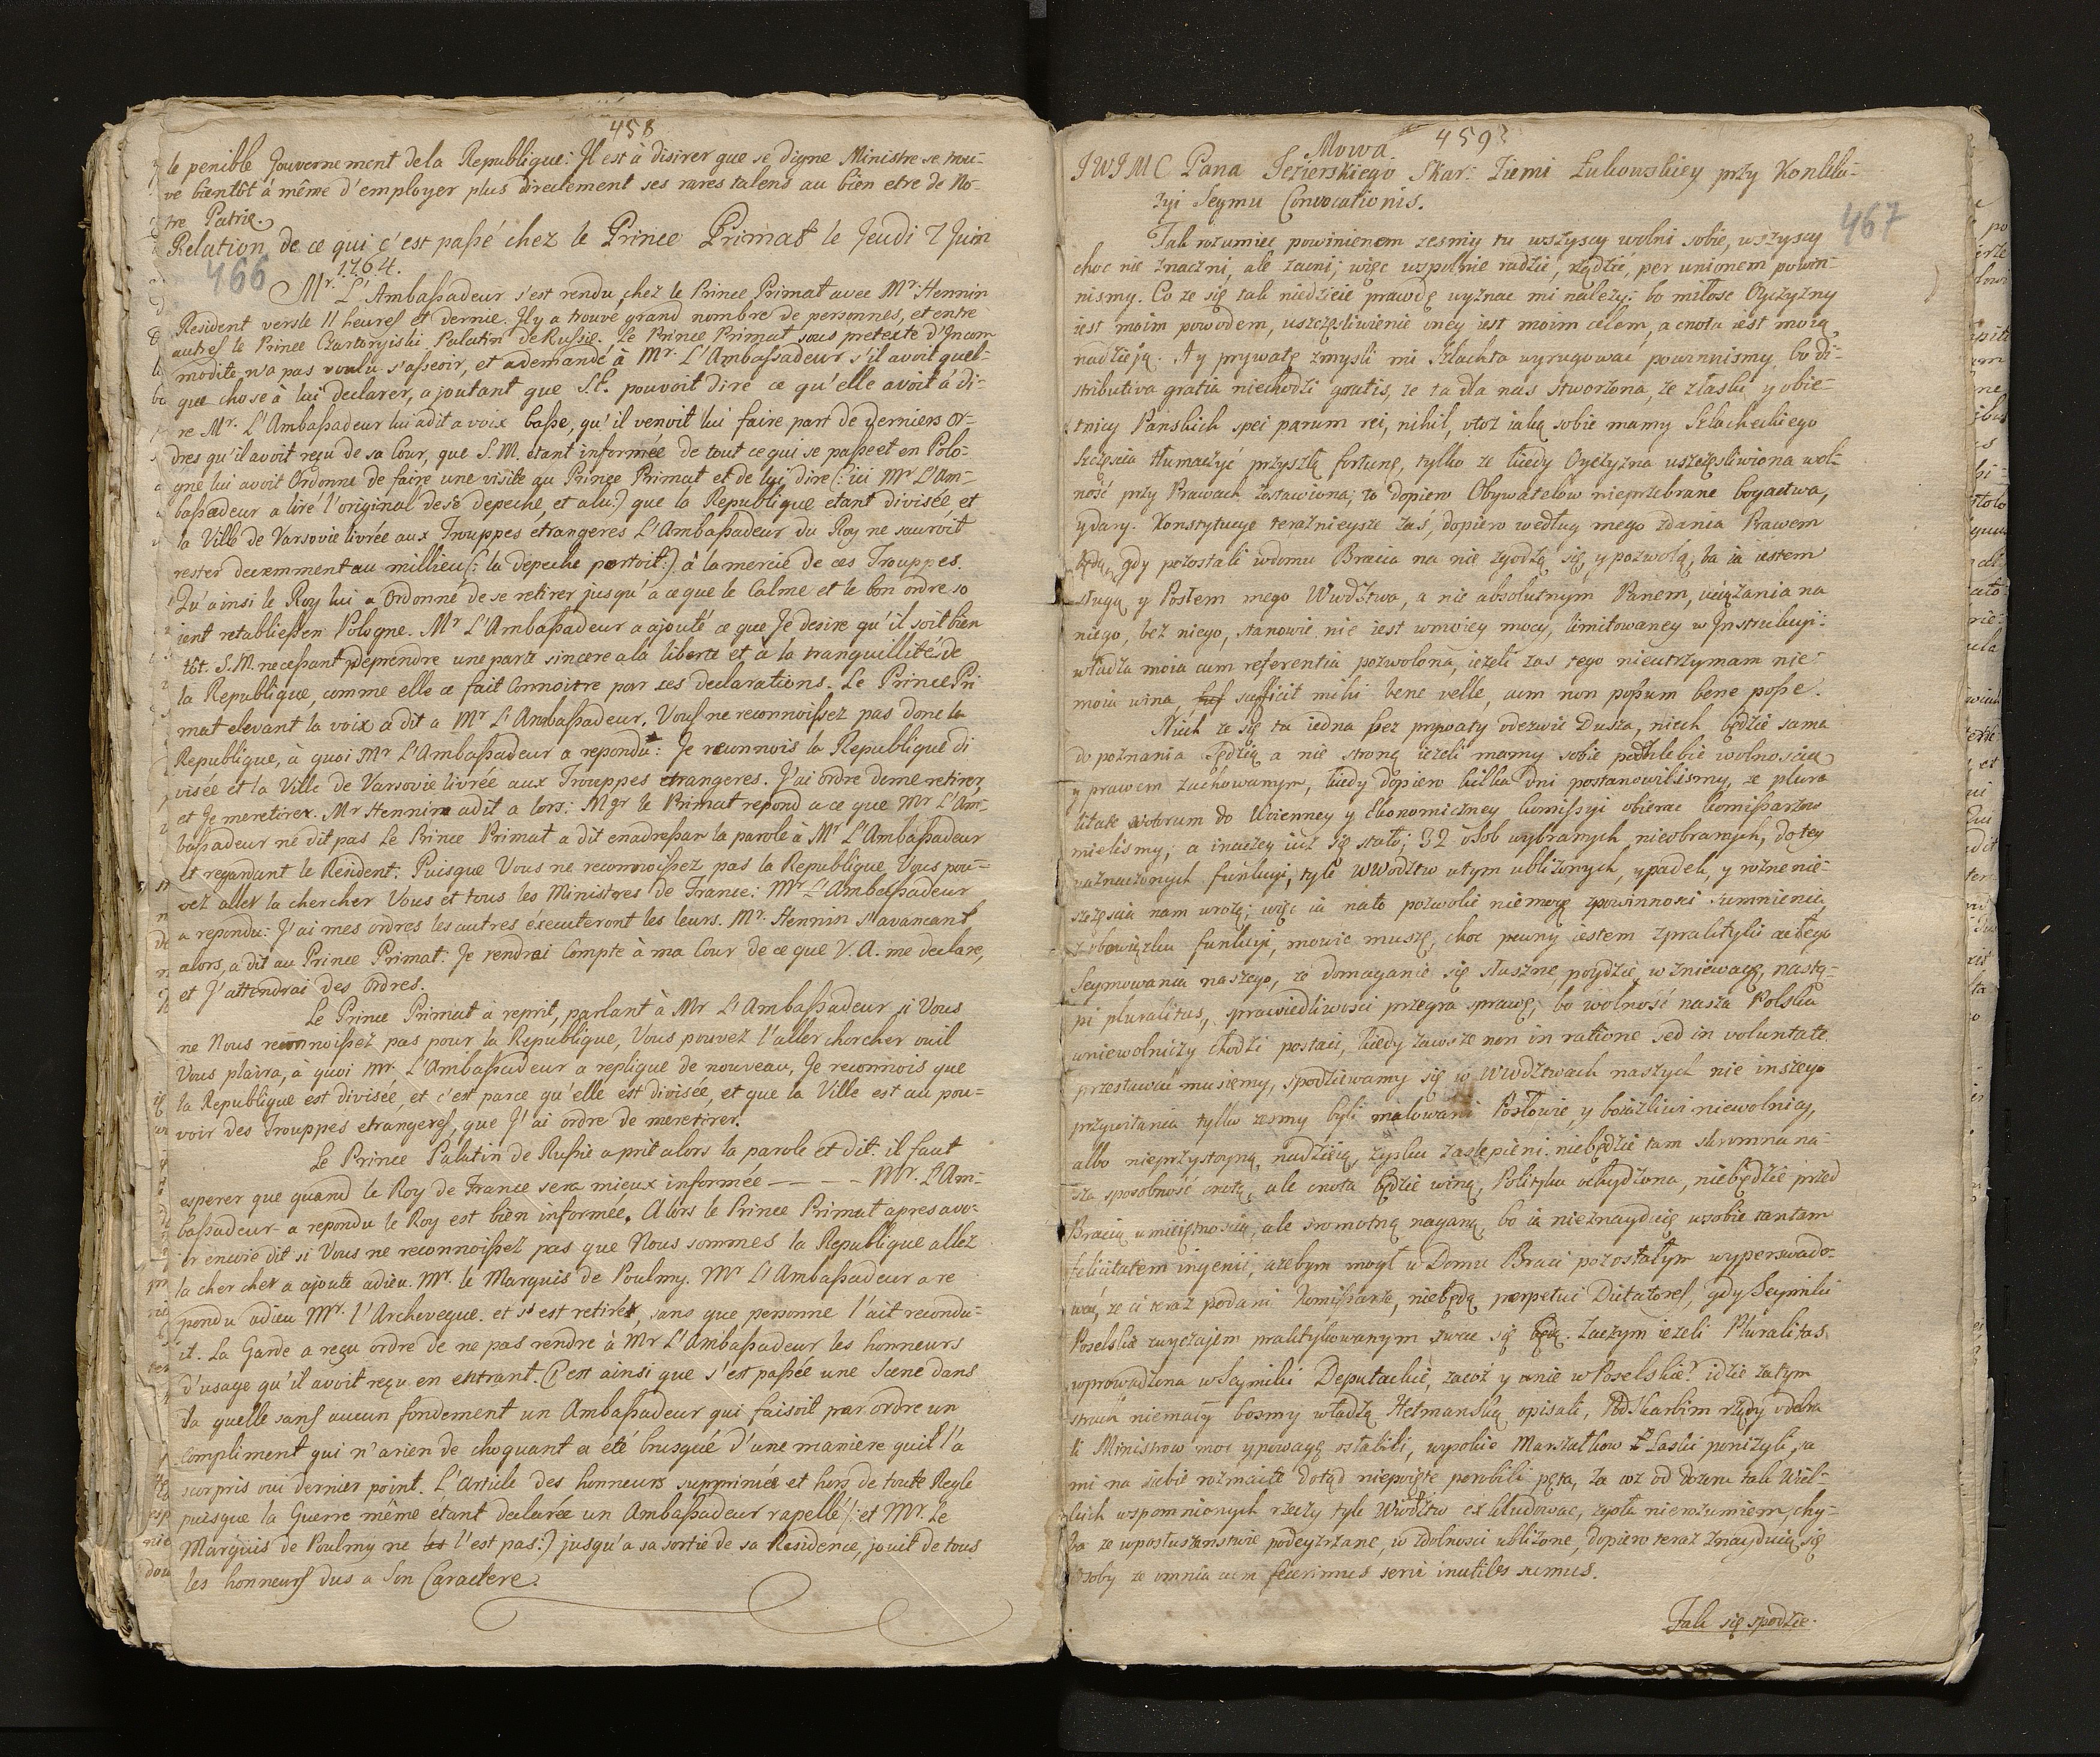 458
le penible Gouvernement dela Republique: Il est à disirer que se digne Ministre se trou-
ve bientôt á même d'employer plus directement ses rares talens au bien etre de No-
tre Patrie.
Relation de ce qui c'est passé chez le Prince Primat le Jeudi 7 Juin
1764.
466
Mr. L'Ambassadeur s'est rendu chez le Prince Primat avec Mr. Hennin
Resident versle 11 heures et dernie. Il y a trouvé grand nombre de personnes, et entre
autres le Prince Czartoryiski Palatin de Russie. Le Prince Primat sous pretexte d'Incom
modité n'a pas voulu s'asseoir, et ademandé à Mr. L'Ambassadeur s'il avoit quel-
que chose à lui declarer, ajoutant que S.E. pouvoit dire ce qu'elle avoit á di-
re Mr. L'Ambassadeur lui adit a voix basse, qu'il venoit lui faire part de derniers or-
dres qu'il avoit reçu de sa Cour, que S.M. etant informée de tout ce qui se passe et en Polo-
gne lui avoit Ordonne de faire une visite au Prince Primat et de lui dire (: ici Mr L'Am-
bassadeur a tiré l'original de sa depeche, et a lu:) que la Republique etant divisée, et
la Ville de Varsovie livrée aux Trouppes etrangeres L'Ambassadeur du Roy ne sauroit
rester decemment au millieu (: la depeche portoit:) à la mercie de ces Trouppes.
Qu'ainsi le Roy lui a Ordonné de se retirer jusqu'á ce que le Calme et le bon ordre so
ient retablies en Pologne. Mr L'Ambassadeur a ajouté ce que Je desire qu'il soit bien
tôt. S.M. ne cessant de prendre une part sincere a la liberte et à la tranquillité de
la Republique, comme elle a fait Connoitre par ses declarations. Le Prince Pri
mat elevant la voix a dit a Mr L'Ambassadeur. Vous ne reconnoissez pas donc la
Republique, à quoi Mr L'Ambassadeur a repondu: Je reconnois la Republique di
visée et la Ville de Varsovie livrée aux Trouppes etrangeres. J'ai ordre de me retirer,
et Je me retirer. Mr Hennin adit a lors: Mgr le Primat repond a ce que Mr L'Am-
bassadeur ne dit pas Le Prince Primat a dit en adressan la parole à Mr L'Ambassadeur
et regardant le Resident: Puisque Vous ne reconnoissez pas la Republique Vous pou-
vez aller la chercher Vous et tous les Ministres de France: Mr L'Ambassadeur
a repondu: J'ai mes ordres les autres éxecuteront les leurs. Mr. Hennin s'avancant
alors, a dit au Prince Primat: Je rendrai Compte à ma Cour de ce que V.A. me declare,
et J'attendrai des Ordres.
Le Prince Primat a reprit, parlant à Mr L'Ambassadeur si Vous
ne Nous reconnoissez pas pour la Republique, Vous pouvez l'aller chercher ou il
Vous plaira, à quoi Mr. L'Ambassadeur a replique de nouveau, Je reconnois que
la Republique est divisée, et c'est parce qu'elle est divisée, et que la Ville est au pou-
voir des Trouppes etrangeres, que J'ai ordre de me retirer.
Le Prince Palatin de Russie a prit alors la parole et dit: il faut
esperer que quand le Roy de France sera mieux informée — — — — Mr. L'Am-
bassadeur a repondu le Roy est bien informée. Alors le Prince Primat apres avo-
ir encore dit si Vous ne reconnoissez pas que Nous sommes la Republique allez
la chercher a ajoute adieu. Mr. le Marquis de Poulmy. Mr L'Ambassadeur a re
pondu adieu Mr. l'Archeveque. et s'est retirés, sans que personne l'ait recondu-
it. La Garde a reçu ordre de ne pas rendre à Mr L'Ambassadeur les honneurs
d'usage qu'il avoit reçu en entrant. C'est ainsi que s'est passée une Scene dans
la quelle sans aucun fondement un Ambassadeur qui faisoit par ordre un
compliment qui n'a rien de choquant a été brusqué d'une maniere qu'il l'a
surpris oui dernier point. L'Article des honneurs supprimés et hors de toute Regle
puisque la Guerre même étant declarée un Ambassadeur rapellé (: et Mr. Le
Marquis de Poulmy ne l'est pas:) jusqu'a sa sortie de sa Residence, jouit de tous
les honneurs dus a Son Caractere.
459
Mowa
JWJMC Pana Jezierskiego Skar: Ziemi Łukowskiey przy Konklu-
zyi Seymu Convocationis.
467
Tak rozumiec powinienem zesmy tu wszyscy wolni sobie, wszyscy
choc nie znaczni, ale zacni; więc wspolnie radzić, rządzić, per unionem powin-
nismy. Co ze się tak niedzieie prawdę wyznac mi nalezy: bo miłosc Oyczyzny
iest moim powodem, uszczęsliwienie oney iest moim celem, a cnota iest moią
nadzieją. A y prywatę zmysli mi Szlachta wyrugować powinnismy, bo di-
stributiva gratia niechodzi gratis, ze ta dla nas stworzona, ze z łaski y obie-
tnicy Panskich spei parum rei, nihil, otoz iaką sobie mamy Szlacheckiego
szczęscia tłumaczyć przyszłą fortunę, tylko ze kiedy Oyczyzna uszczęsliwiona wol-
ność przy Prawach zostawiona; to dopiero Obywatelow nieprzebrane bogactwa,
y dary. Konstytucye teraznieysze zaś, dopiero według mego zdania Prawem
będą, gdy pozostali w domu Bracia na nie zgodzą się, y pozwolą, ba ia iestem
sługą y Posłem mego Wwdztwa, a nie absolutnym Panem, uciązania na
niego, bez niego, stanowic nie iest w moiey mocy, limitowaney w Instrukcyi:
władza moia cum referentia pozwolona, iezeli zas tego nieutrzymam nie:
moia wina, sufficit mihi bene velle, cum non possum bene posse.
Niech ze się tu iedna bez prywaty odezwie Dusza, niech będzie sama
do poznania sędzią a nie stroną iezeli mamy sobie podchlebic wolnoscią
y prawem zachowanym, kiedy dopiero kilka dni postanowilismy, ze plura
litate votorum do Woienney y Ekonomiczney komissyi obierac komissarzow
mielismy, a inaczey iuz się stało; 32 osob wybranych, nieobranych, do tey
naznaczonych funkcyi, tyle WWodztw w tym ubliżonych, upadek, y rozne nie-
szczęscia nam wrozą; więc ia na to pozwolic niemogę z powinnosci sumnienia,
z obowiązku funkcyi, mowic muszę, choc pewny iestem z praktyki całego
Seymowania naszego, ze domaganie się słuszne, poydzie w zniewagę, nastą-
pi pluralitas, sprawiedliwosci przegra sprawę, bo wolność nasza Polska
w niewolniczy chodzi postaci, kiedy zawsze non in ratione sed in voluntate
przestawać musiemy, spodziewamy się w Wwdztwach naszych nie inszego
przywitania tylko zesmy byli malowani Posłowie, y boiazliwi niewolnicy,
albo nieprzystoyną, nadzieią, zysku zaslepieni. niebędzie tam skromna na-
sza sposobność cnotą, ale cnota będzie winą, Polityka ochydzona, niebędzie przed
Bracią umieiętnoscią, ale sromotną naganą, bo ia nieznayduię w sobie tantam
felicitatem ingenii, azebym mogł w Domu Braci pozostałym wyperswado-
wać, ze ci teraz podani Komissarze, niebędą perpetui Dictatores, gdy Seymiki
Poselskie zwyczajem praktykowanym zwac się będą. Zaczym iezeli Pluralitas
wprowadzona w Seymiki Deputackie, zacoż y nie w Poselskie? idzie zatym
strach niemały bosmy władzą Hetmanską opisali, Podskarbim rządy odebra
li Ministrow moc y powagę osłabili, wysokie Marszałkow Laski ponizyli, sa
mi na siebie rozmaite dotąd niepoięte porobili pęta, za coz od dozoru tak Wiel-
kich wspomnionych rzeczy tyle Wwdztw exkludowac, zgoła nierozumiem, chy-
ba ze w posłuszenstwie podeyzrzane, w zdolnosci ubliżone, dopiero teraz znayduią się
Osoby ze omnia cum fecerimus servi inutiles sumus.
Tak się spodzie-